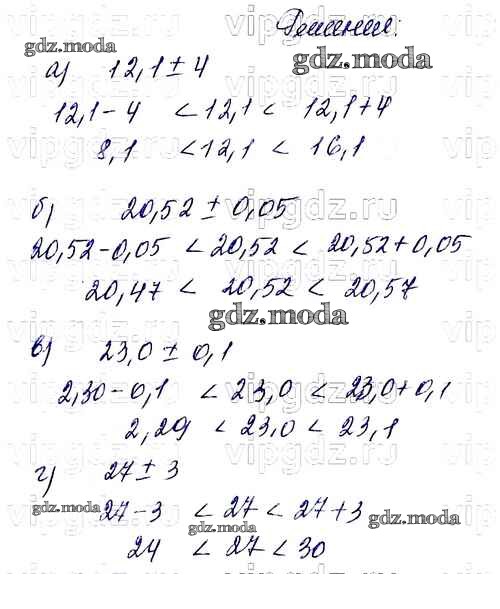 Решение:
а) 12,1 ± 4
12,1 - 4 < 12,1 < 12,1 + 4
8,1 < 12,1 < 16,1
б) 20,52 ± 0,05
20,52 - 0,05 < 20,52 < 20,52 + 0,05
20,47 < 20,52 < 20,57
в) 23,0 ± 0,1
2,30 - 0,1 < 23,0 < 23,0 + 0,1
2,29 < 23,0 < 23,1
г) 27 ± 3
27 - 3 < 27 < 27 + 3
24 < 27 < 30
gdz.moda
gdz.moda
gdz.moda
gdz.moda
gdz.moda
gdz.moda
vipgdz.ru